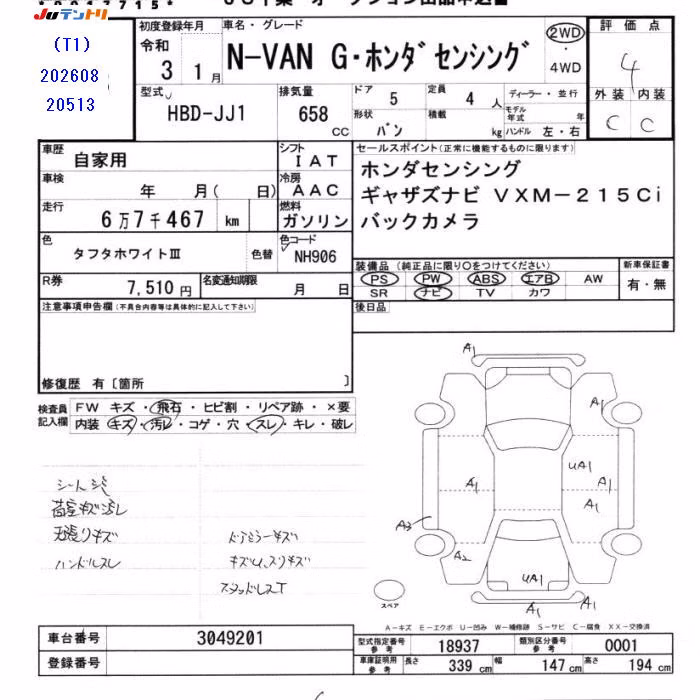 JUテントリ
(T1)
202608
20513
初度登録年月
令和
3 1月
車名・グレード
N-VAN G・ホンダセンシング
2WD
・
4WD
評価点
4
外装 内装
C C
型式
HBD-JJ1
排気量
658
CC
ドア
5
定員
4 人
形状
バン
積載
kg
ディーラー・並行
モデル年式 年
ハンドル 左・右
車歴
自家用
シフト
IAT
車検
年 月( 日)
冷房
AAC
走行
6万7千467 km
燃料
ガソリン
色
タフタホワイトⅢ
色替
色コード
NH906
R券
7,510円
名変通知期限
月 日
セールスポイント(正常に機能するものに限ります)
ホンダセンシング
ギャザズナビ VXM-215Ci
バックカメラ
装備品(純正品に限り○をつけてください)
PS PW ABS エアB AW
SR ナビ TV カワ
新車保証書
有・無
後日品
注意事項申告欄(不具合内容等は具体的に記入して下さい)
修復歴 有〔箇所 〕
検査員
記入欄
FW キズ・飛石・ヒビ割・リペア跡・×要
内装 キズ・汚レ・コゲ・穴・スレ・キレ・破レ
シート汚
荷室キズ汚レ
天張りキズ
ハンドルスレ
ドアミラーキズ
スタッドレスT
A1
A1
UA1
A1
A1
A3
A2
UA1
A1
A1
スペア
A-キズ E-エクボ U-凹み W-補修跡 S-サビ C-腐食 XX-交換済
車台番号
3049201
登録番号
型式指定番号
参考
18937
類別区分番号
参考
0001
車庫証明用
参考
長さ 339 cm 幅 147 cm 高さ 194 cm